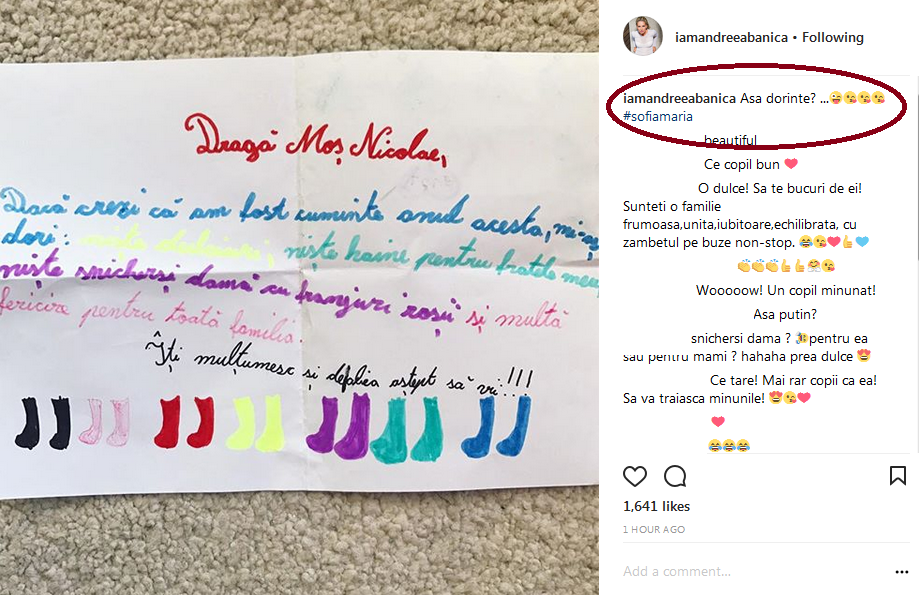 Dragă Moș Nicolae,
Dacă crezi că am fost cuminte anul acesta, mi-aș
dori: niște dulciuri, niște haine pentru fratele meu,
niște snicherși damă cu franjuri roșii și multă
fericire pentru toată familia.
Îți mulțumesc și deabiea aștept să vi!!!
iamandreeabanica • Following
iamandreeabanica Asa dorinte? ...😜😘😘😘
#sofiamaria
beautiful
Ce copil bun ❤
O dulce! Sa te bucuri de ei!
Sunteti o familie
frumoasa,unita,iubitoare,echilibrata, cu
zambetul pe buze non-stop. 😂😘❤👍💙
👏👏👏👍👍😘
Wooooow! Un copil minunat!
Asa putin?
snichersi dama ? pentru ea
sau pentru mami ? hahaha prea dulce 😍
Ce tare! Mai rar copii ca ea!
Sa va traiasca minunile! 😍😘❤
❤
😂😂😂
1,641 likes
1 HOUR AGO
Add a comment...